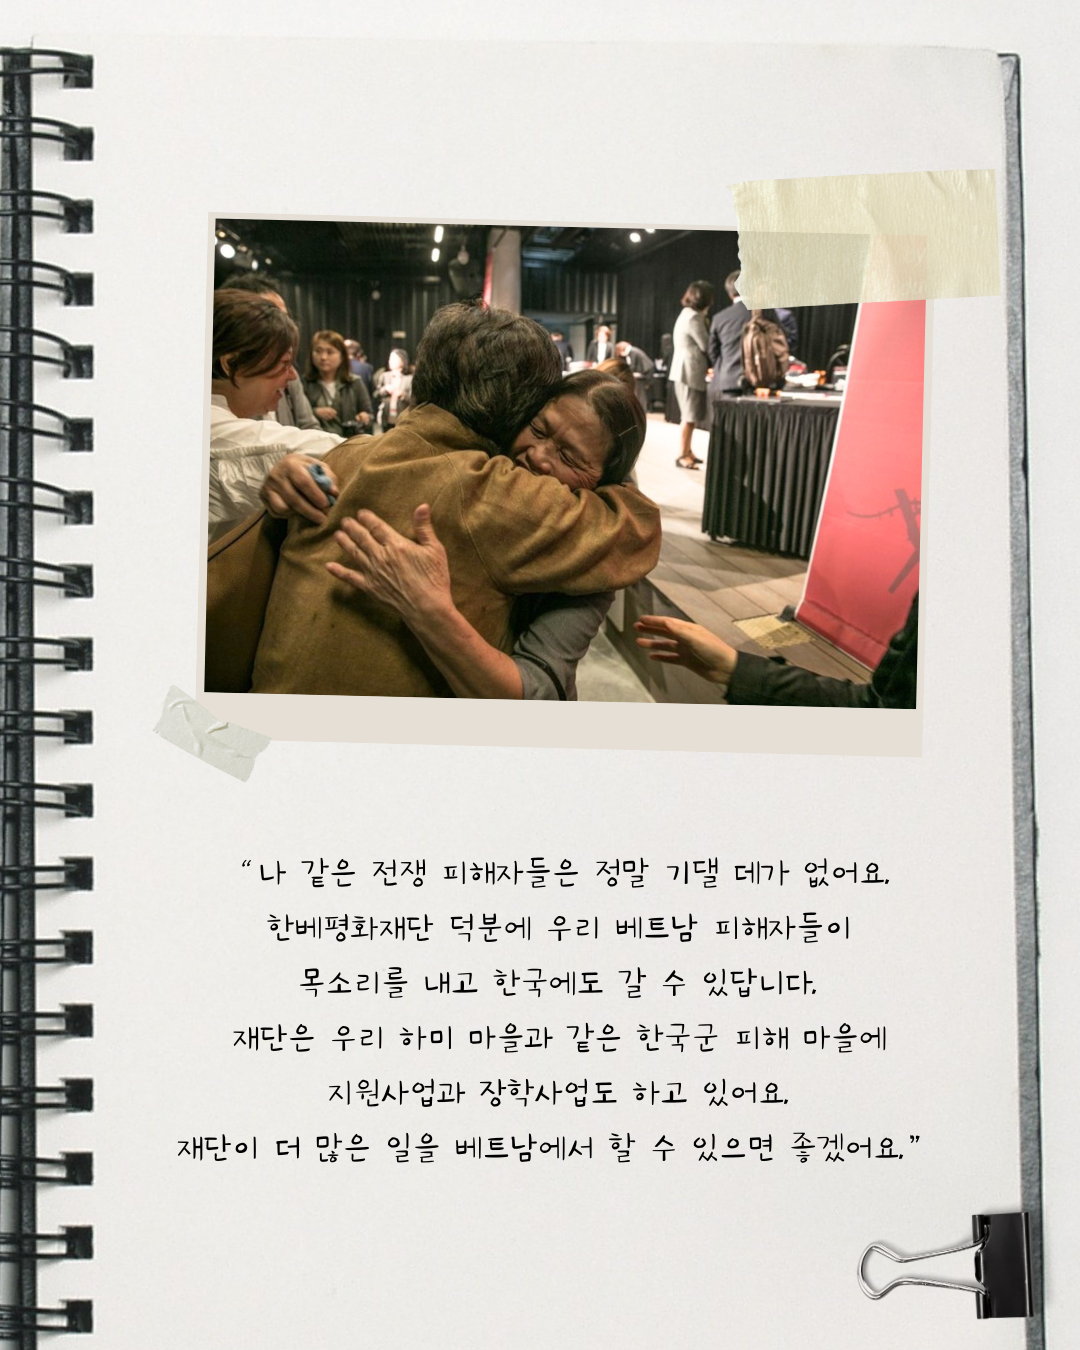 “나 같은 전쟁 피해자들은 정말 기댈 데가 없어요.
한베평화재단 덕분에 우리 베트남 피해자들이
목소리를 내고 한국에도 갈 수 있답니다.
재단은 우리 하미 마을과 같은 한국군 피해 마을에
지원사업과 장학사업도 하고 있어요.
재단이 더 많은 일을 베트남에서 할 수 있으면 좋겠어요.”